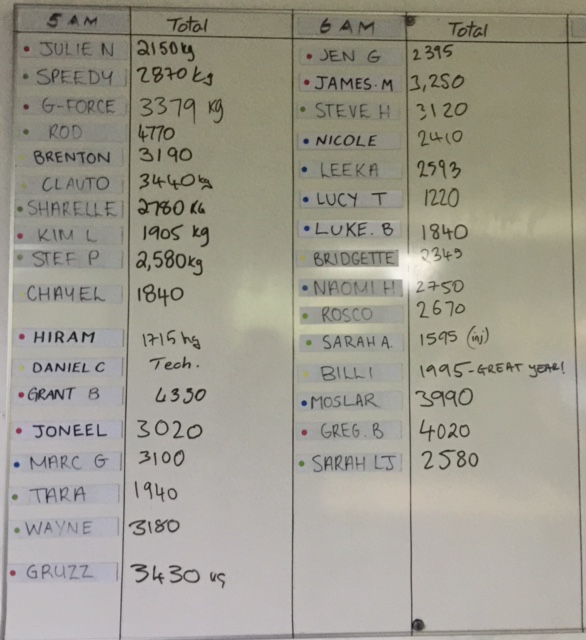 5 AM Total
JULIE N 2150kg
SPEEDY 2870 kg
G-FORCE 3379 kg
ROD 4770
BRENTON 3190
CLAUTO 3440kg
SHARELLE 2780 KG
KIM L 1905 kg
STEF P 2,580kg
CHAYEL 1840
HIRAM 1715 kg
DANIEL C Tech.
GRANT B 4350
JONEEL 3020
MARC G 3100
TARA 1940
WAYNE 3180
GRUZZ 3430 KG
6 AM Total
JEN G 2395
JAMES.M 3,250
STEVE H 3120
NICOLE 2410
LEEKA 2593
LUCY T 1220
LUKE.B 1840
BRIDGETTE 2345
NAOMI H 2750
ROSCO 2670
SARAH A. 1595 (inj)
BILLI 1995-GREAT YEAR!
MOSLAR 3990
GREG.B 4020
SARAH LJ 2580